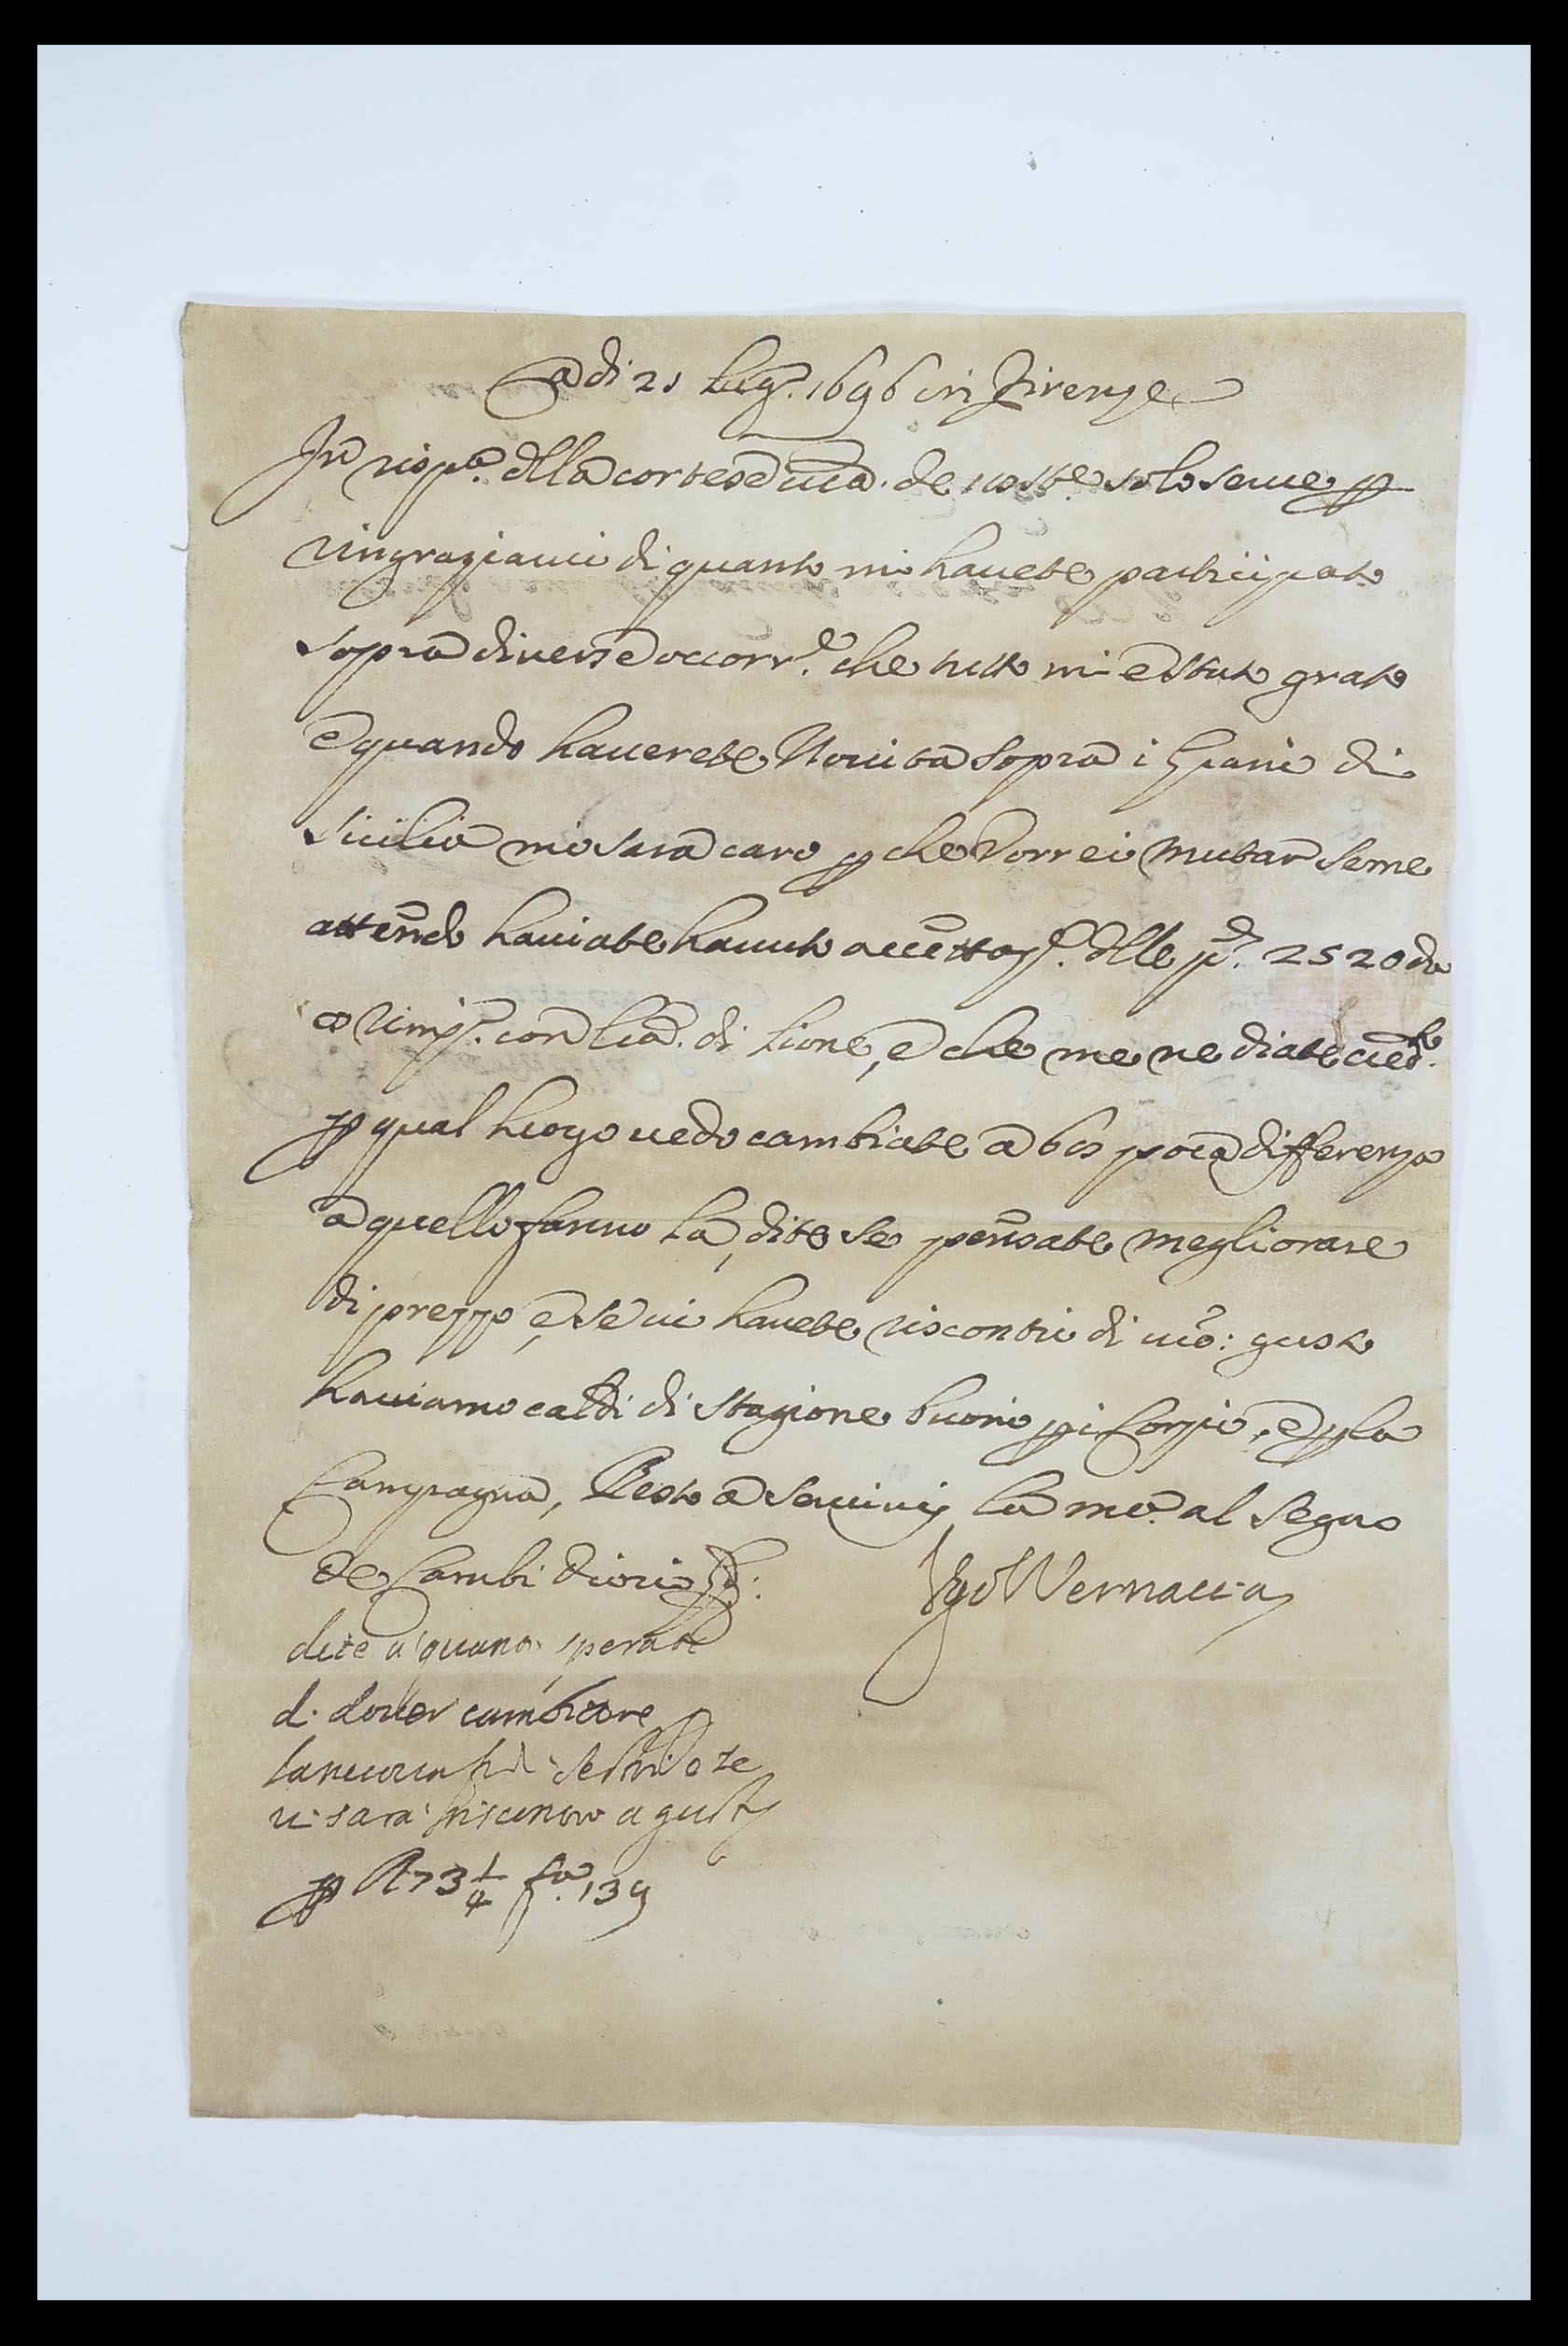 a di 21 lug.º 1696 in Firenze
In risp.ta dlla cortese vra. de 10 st.e solo serve p
ringraziarvi di quanto mi havete participato
sopra diverse occorr.e che tutto mi è stato grato
e quando haverete Novita sopra i Grani di
Sicilia mi sara caro p che Vorrei mutar seme
attendo haviate havuto accettaz.e dlle p.d 2520 da
rims.e con lra. di Lione, e che me ne diate cred.to
p qual luogo vedo cambiate a 60 poca differenza
a quello fanno la, dite se pensate megliorare
di prezzo, e se vi havete riscontri di vro: gusto
haviamo caldi di stagione buoni p i Corpi, e p la
Campagna, Resto a servirvi, la mca. al segno
de Cambi di ori
Ugo Vernaccia
dite a quanto sperate
di dover cambiare
e se
vi sara riscontro a gusto
p R 73 1/4 139